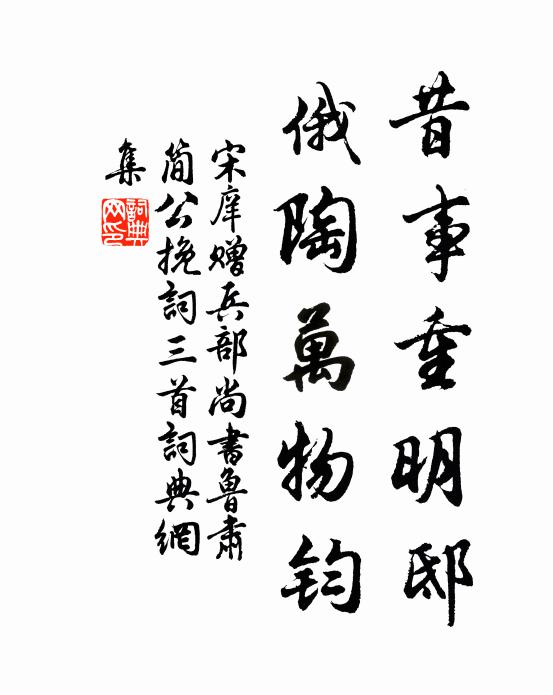 昔事重明邸
俄陶萬物鈞
宋庠贈兵部尚書魯肅
簡公挽詞三首詞典網
集
詞典
网印